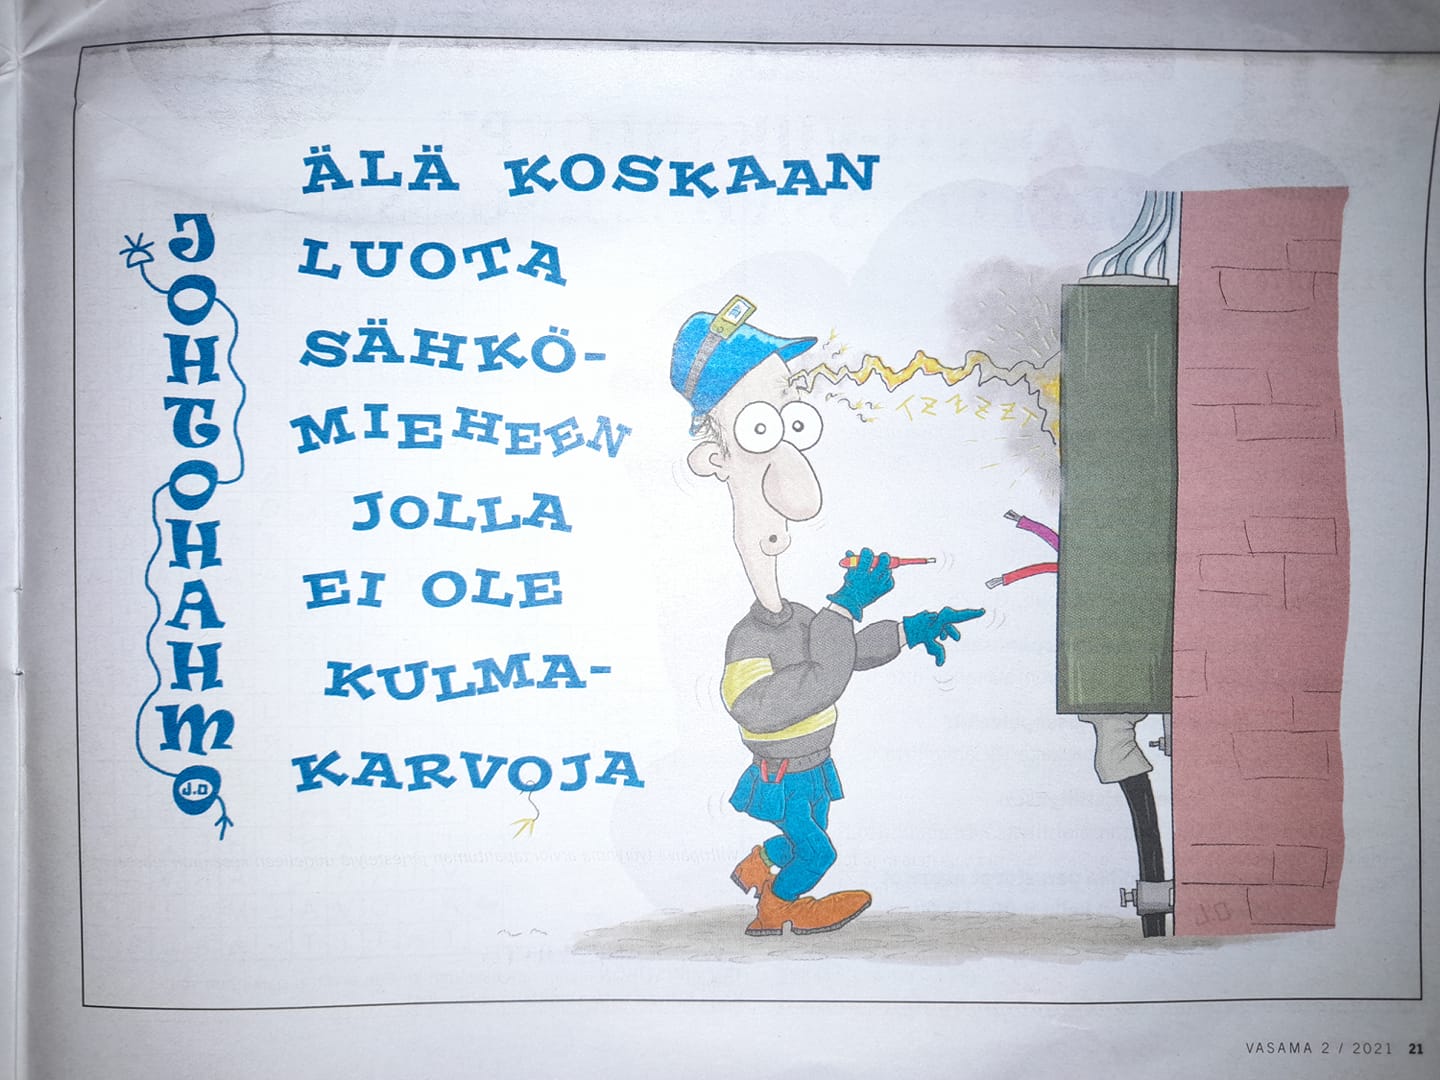 JOHTOHAHMO
J.O
ÄLÄ KOSKAAN
LUOTA
SÄHKÖ-
MIEHEEN
JOLLA
EI OLE
KULMA-
KARVOJA
VASAMA 2 / 2021 21